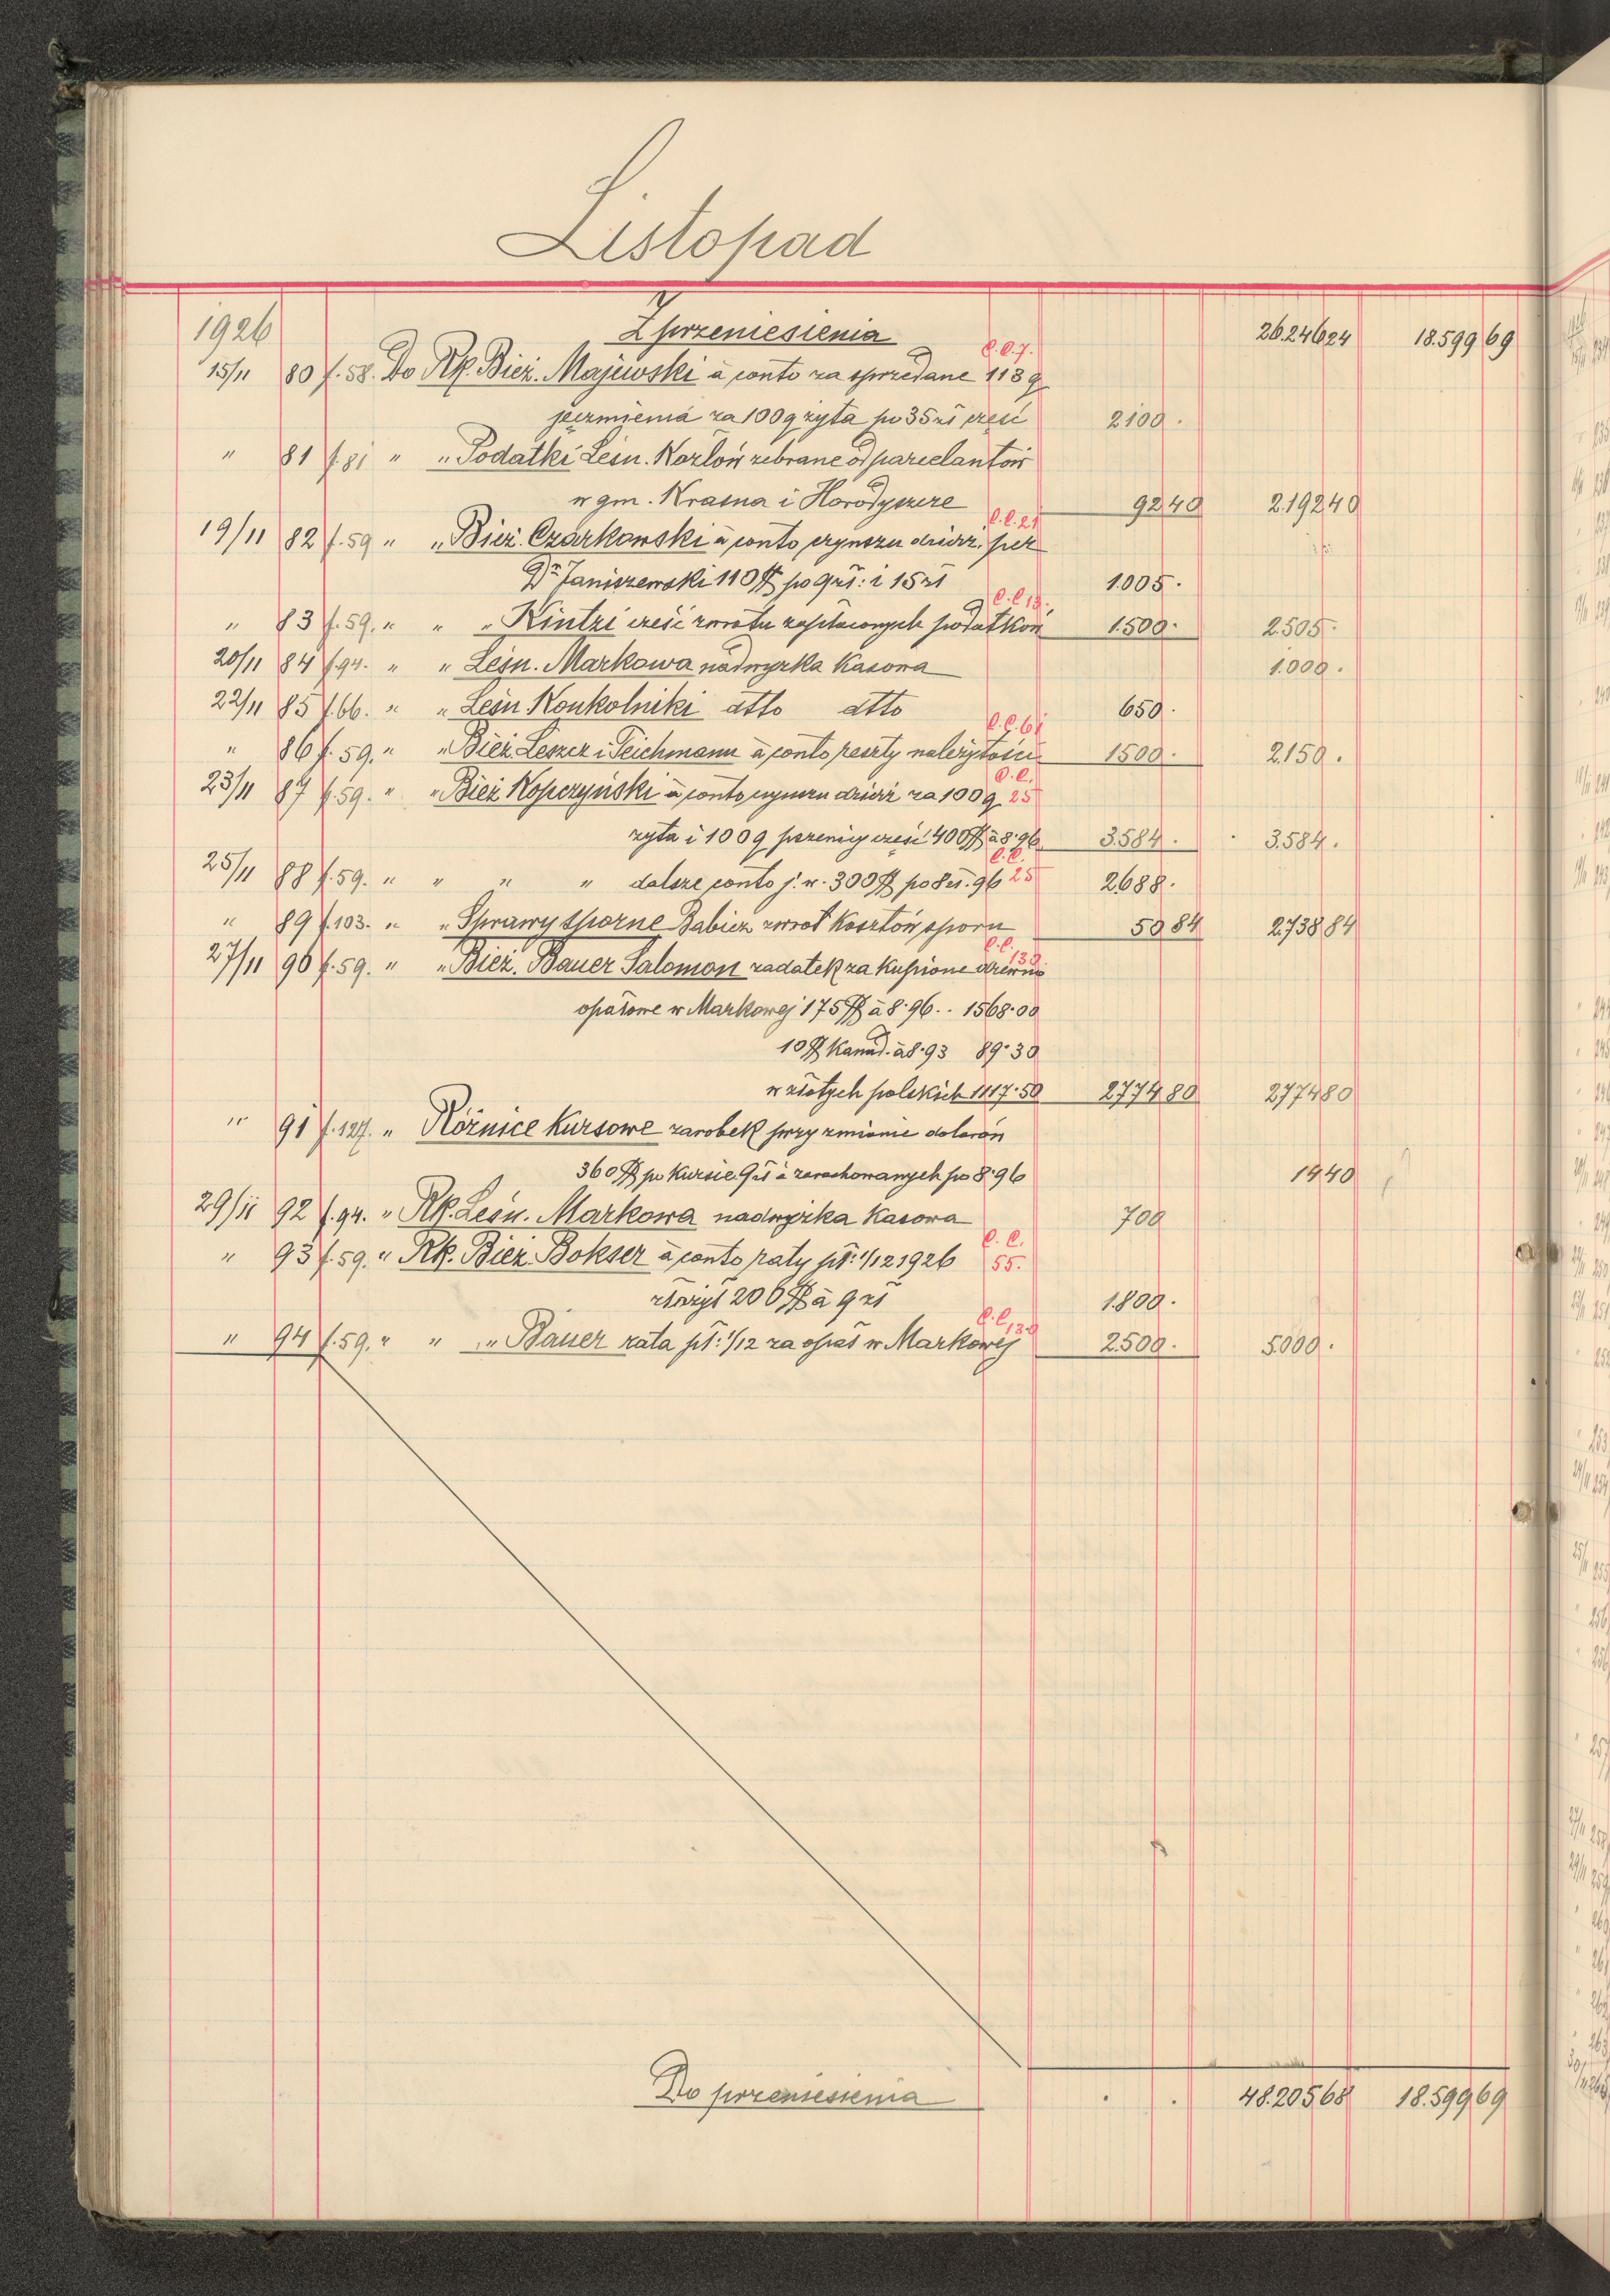 Listopad
1926 Z przeniesienia 26.246 24 18.599 69
C.C.7.
15/11 80 f. 58. Do Rk. Bież. Majewski à conto za sprzedane 113 q
jęczmienia za 100 q żyta po 35 zł część 2100 .
" 81 f. 81 " " Podatki Leśn. Kozłów zebrane od parcelantów
w gm. Krasna i Horodyszcze 92 40 2.192 40
C.C.21
19/11 82 f. 59 " " Bież. Czarkowski à conto czynszu dzierż. per
Dr Janiszewski 110 $ po 9 zł: i 15 zł 1.005 .
C.C.13.
" 83 f. 59. " " " Kintzi część zwrotu zapłaconych podatków 1.500 . 2.505 .
20/11 84 f. 94. " " Leśn. Markowa nadwyżka Kasowa 1.000 .
22/11 85 f. 66. " " Leśn. Konkolniki dtto dtto 650 .
C.C.61
" 86 f. 59. " " Bież. Leszcz i Teichmann à conto reszty należytości 1500 . 2.150 .
C.C.
23/11 87 f. 59. " " Bież Kopczyński à conto czynszu dzierż za 100 q 25
żyta i 100 q pszenicy część 400 $ à 8·96 3.584 . 3.584 .
C.C.
25/11 88 f. 59. " " " " dalsze conto j. w. 300 $ po 8 zł. 96 25 2.688 .
" 89 f. 103. " " Sprawy sporne Babicz zwrot Kosztów sporu 50 84 2.738 84
C.C. 130
27/11 90 f. 59. " " Bież. Bauer Salomon zadatek za Kupione drzewo
opałowe w Markowej 175 $ à 8·96 .. 1568·00
10 $ Kanad. à 8·93 89·30
w złotych polskich 1117·50 2.774 80 2.774 80
" 91 f. 127. " Różnice Kursowe zarobek przy zmianie dolarów
360 $ po Kursie 9 zł a zarachowanych po 8·96 14 40
29/11 92 f. 94. " Rk. Leśn. Markowa nadwyżka Kasowa 700
C.C.
" 93 f. 59. " Rk. Bież. Bokser à conto raty pł: 1/12 1926 55.
złożył 200 $ à 9 zł 1.800 .
C.C. 130
" 94 f. 59. " " " Bauer rata pł: 1/12 za opał w Markowej 2.500 . 5.000 .
Do przeniesienia . . 48.205 68 18.599 69